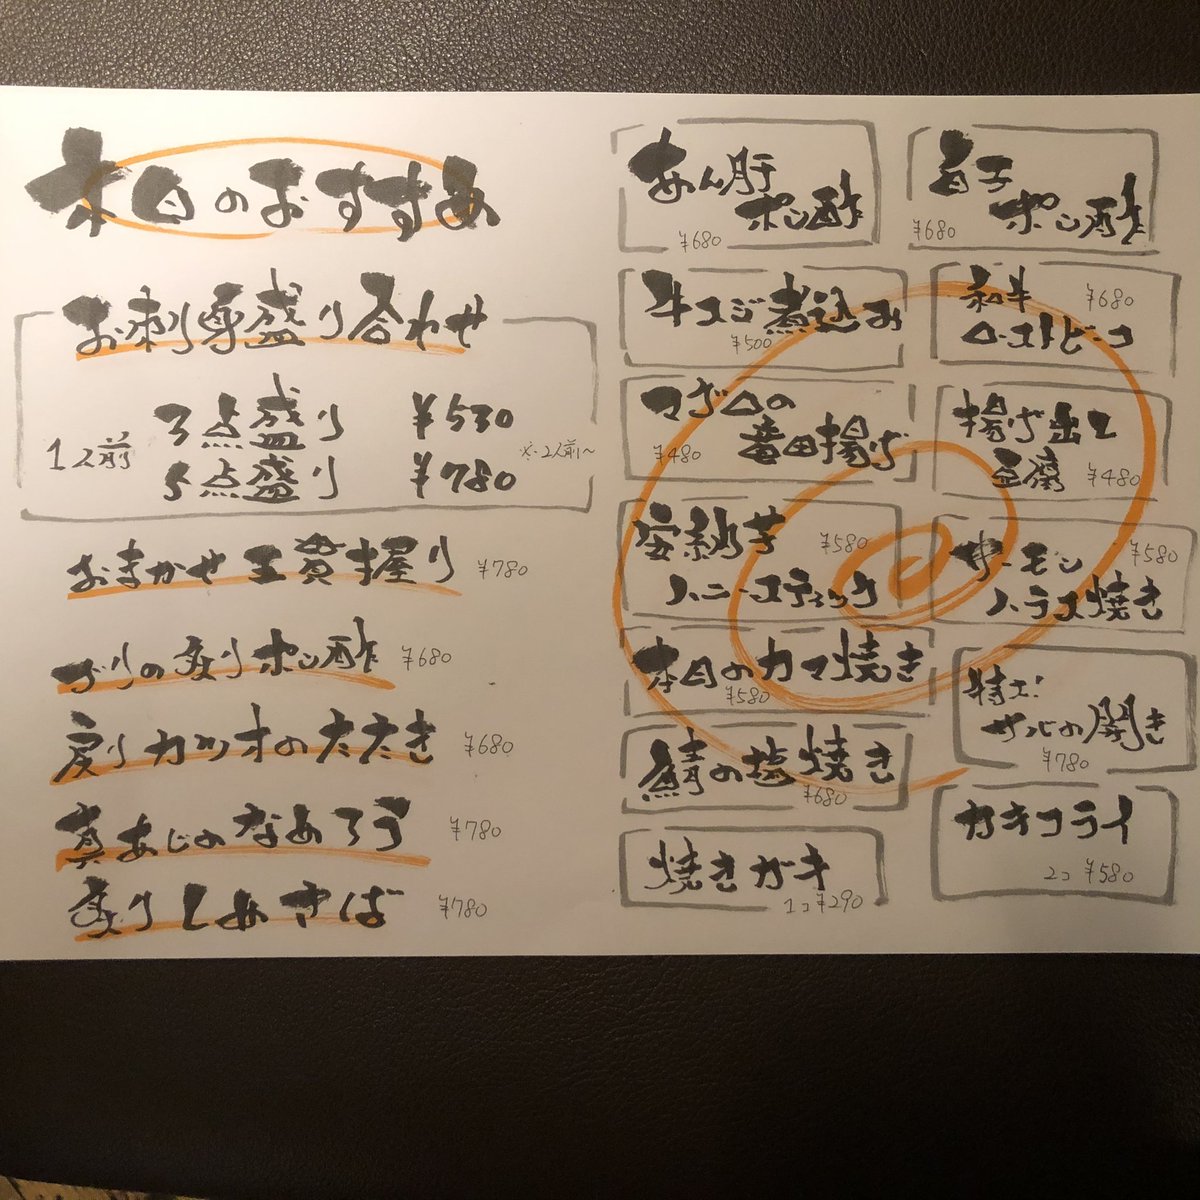 本日のおすすめ
お刺身盛り合わせ
1人前
3点盛り ¥530
5点盛り ¥780
※2人前~
おまかせ五貫握り ¥780
ぶりの炙りポン酢 ¥680
戻りカツオのたたき ¥680
真あじのなめろう ¥780
炙りしめさば ¥780
あん肝
ポン酢
¥680
白子
ポン酢
¥680
牛スジ煮込み
¥500
和牛 ¥680
ローストビーフ
マグロの
竜田揚げ
¥480
揚げ出し
豆腐 ¥480
安納芋 ¥580
ハニースティック
サーモン ¥580
ハラス焼き
本日のカマ焼き
¥580
特大!
サンマの開き
¥780
鯖の塩焼き
¥680
カキフライ
2コ ¥580
焼きガキ
1コ¥290